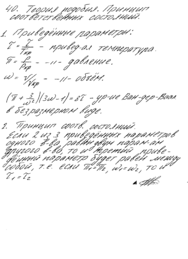 40. Теория подобия. Принцип
соответственных состояний.
1. Приведённые параметры:
τ = T/Tкр - привед-ая температура.
π = P/Pкр - -//- давление.
ω = V/Vкр - -//- объём.
(π + 3/ω²)(3ω - 1) = 8τ - ур-ие Ван-дер-Ваальса
в безразмерном виде.
2. Принцип соотв. состояний
Если 2 из 3 приведённых параметров
одного в-ва равны двум парам-ам
другого в-ва, то и третий приве-
дённый параметр будет равен между
собой, т.е. если π₁=π₂, ω₁=ω₂, то и
τ₁=τ₂